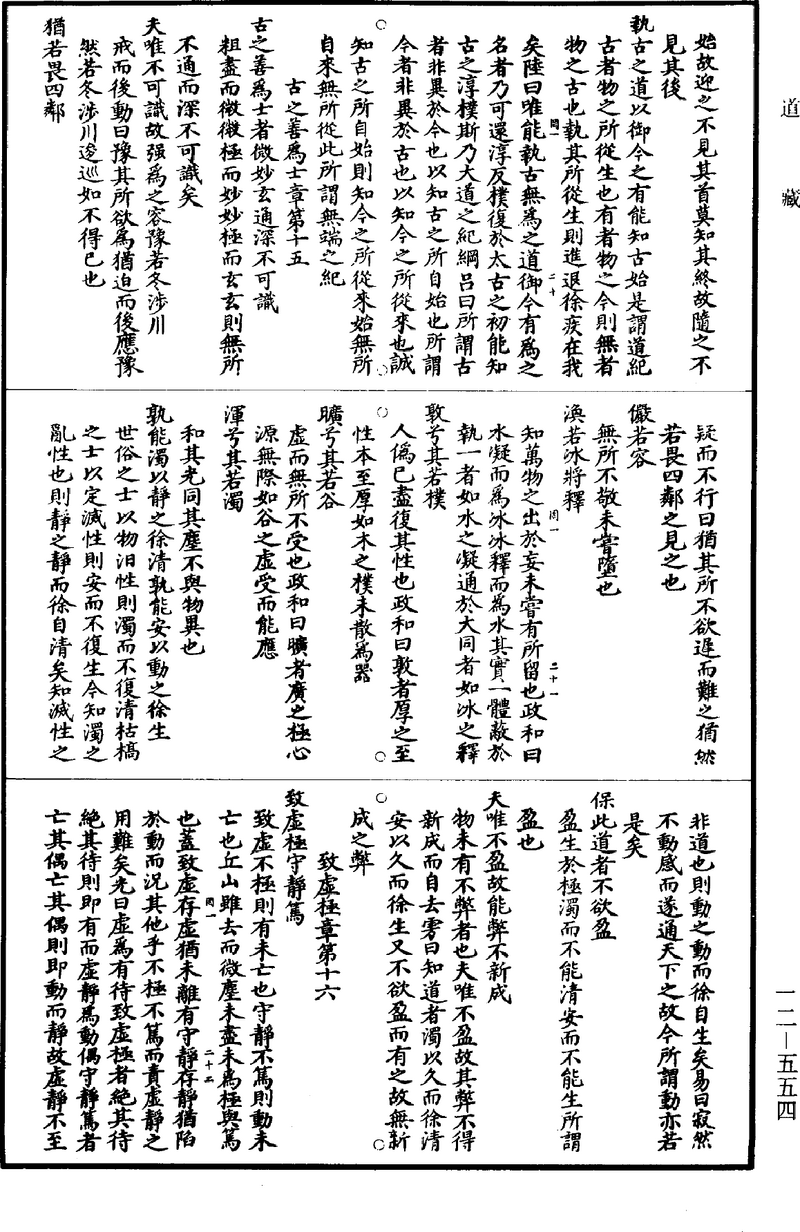 道藏
始故迎之不見其首莫知其終故隨之不
見其後
執古之道以御今之有能知古始是謂道紀
古者物之所從生也有者物之今則無者
物之古也執其所從生則進退徐疾在我
矣陸曰唯能執古無為之道御今有為之
名者乃可還淳反樸復於太古之初能知
古之淳樸斯乃大道之紀綱呂曰所謂古
者非異於今也以知古之所自始也所謂
今者非異於古也以知今之所從來也誠
知古之所自始則知今之所從來始無所
自來無所從此所謂無端之紀
古之善為士章第十五
古之善為士者微妙玄通深不可識
粗盡而微微極而妙妙極而玄玄則無所
不通而深不可識矣
夫唯不可識故强為之容豫若冬涉川
戒而後動曰豫其所欲為猶迫而後應豫
然若冬涉川逡巡如不得已也
猶若畏四鄰
疑而不行曰猶其所不欲遲而難之猶然
若畏四鄰之見之也
儼若容
無所不敬未嘗墮也
渙若冰將釋
知萬物之出於妄未嘗有所留也政和曰
水凝而為冰冰釋而為水其實一體蔽於
執一者如水之凝通於大同者如冰之釋
敦兮其若樸
人偽已盡復其性也政和曰敦者厚之至
性本至厚如木之樸未散為器
曠兮其若谷
虛而無所不受也政和曰曠者廣之極心
源無際如谷之虛受而能應
渾兮其若濁
和其光同其塵不與物異也
孰能濁以靜之徐清孰能安以動之徐生
世俗之士以物汩性則濁而不復清枯槁
之士以定滅性則安而不復生今知濁之
亂性也則靜之靜而徐自清矣知滅性之
非道也則動之動而徐自生矣易曰寂然
不動感而遂通天下之故今所謂動亦若
是矣
保此道者不欲盈
盈生於極濁而不能清安而不能生所謂
盈也
夫唯不盈故能弊不新成
物未有不弊者也夫唯不盈故其弊不待
新成而自去雱曰知道者濁以久而徐清
安以久而徐生又不欲盈而有之故無新
成之弊
致虛極章第十六
致虛極守靜篤
致虛不極則有未亡也守靜不篤則動未
亡也丘山雖去而微塵未盡未為極與篤
也蓋致虛存虛猶未離有守靜存靜猶陷
於動而況其他乎不極不篤而責虛靜之
用難矣光曰虛為有待致虛極者絶其待
絶其待則即有而虛靜為動偶守靜篤者
亡其偶亡其偶則即動而靜故虛靜不至
一二—五五四